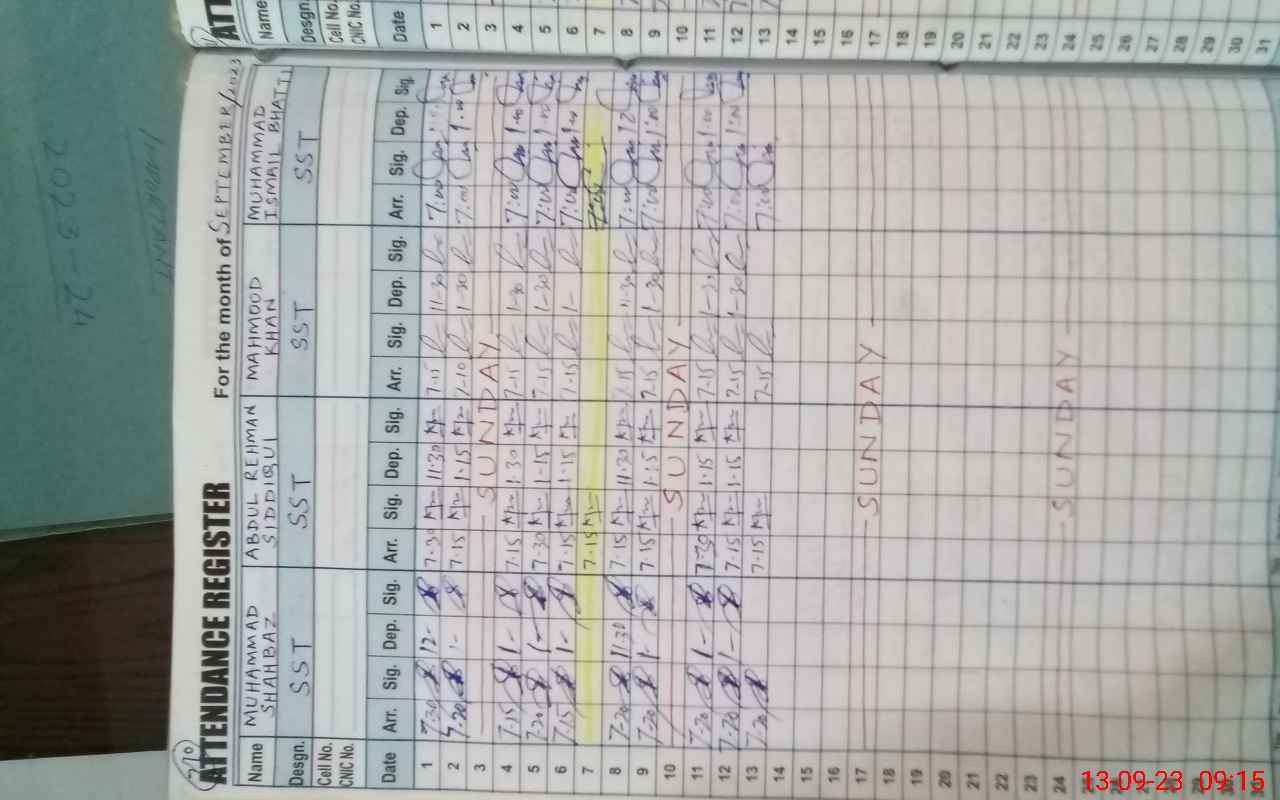 ATTENDANCE REGISTER For the month of SEPTEMBER/2023
Name MUHAMMAD SHAHBAZ ABDUL REHMAN SIDDIQUI MAHMOOD KHAN MUHAMMAD ISMAIL BHATTI
Desgn. SST SST SST SST
Cell No.
CNIC No.
Date Arr. Sig. Dep. Sig. Arr. Sig. Dep. Sig. Arr. Sig. Dep. Sig. Arr. Sig. Dep. Sig.
1 7.30 12- 7.30 11.30 7-15 11-30 7:00
2 7.20 1- 7.15 1.15 7-10 1-30 7:00 1.00
3 SUNDAY
4 7.15 1- 7.15 1.30 7-15 1-30 7:00 1.00
5 7.20 1- 7.30 1-15 7-15 1-30 7:00 1.00
6 7.15 1- 7.15 1.15 7-15 1- 7:00 1.00
7 7.15
8 7.20 11.30 7.15 11.30 7-15 11-30 7:00 12
9 7.20 1- 7.15 1.15 7-15 1-30 7:00 1:00
10 SUNDAY
11 7.20 1- 7.30 1.15 7-15 1-30 7:00 1.00
12 7.20 1- 7.15 1.15 7-15 1-30 7:00 1:00
13 7.20 7.15 7-15 7:00
14
15
16
17 SUNDAY
18
19
20
21
22
23
24 SUNDAY
25
26
27
28
29
30
Name
Desgn.
Cell No.
CNIC No.
Date
1
2
3
4
5
6
7
8
9
10
11
12
13
14
15
16
17
18
19
20
21
22
23
24
25
26
27
28
29
30
31
2023-24
13-09-23 09:15